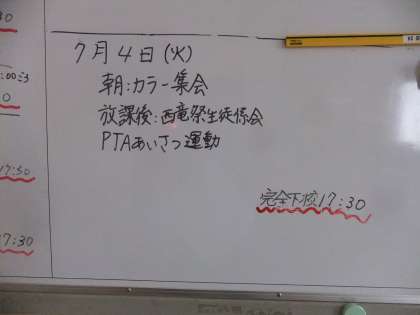 30
7月4日(火)
朝:カラー集会
放課後:西竜祭生徒係会
PTAあいさつ運動
17:50
完全下校17:30
17:30